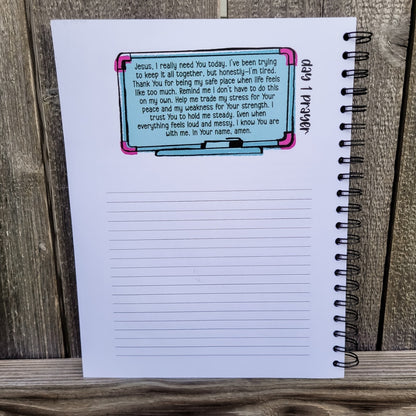 Jesus, I really need You today. I've been trying
to keep it all together, but honestly—I'm tired.
Thank You for being my safe place when life feels
like too much. Remind me I don't have to do this
on my own. Help me trade my stress for Your
peace and my weakness for Your strength. I
trust You to hold me steady. Even when
everything feels loud and messy, I know You are
with me. In Your name, amen.
day 1 prayer